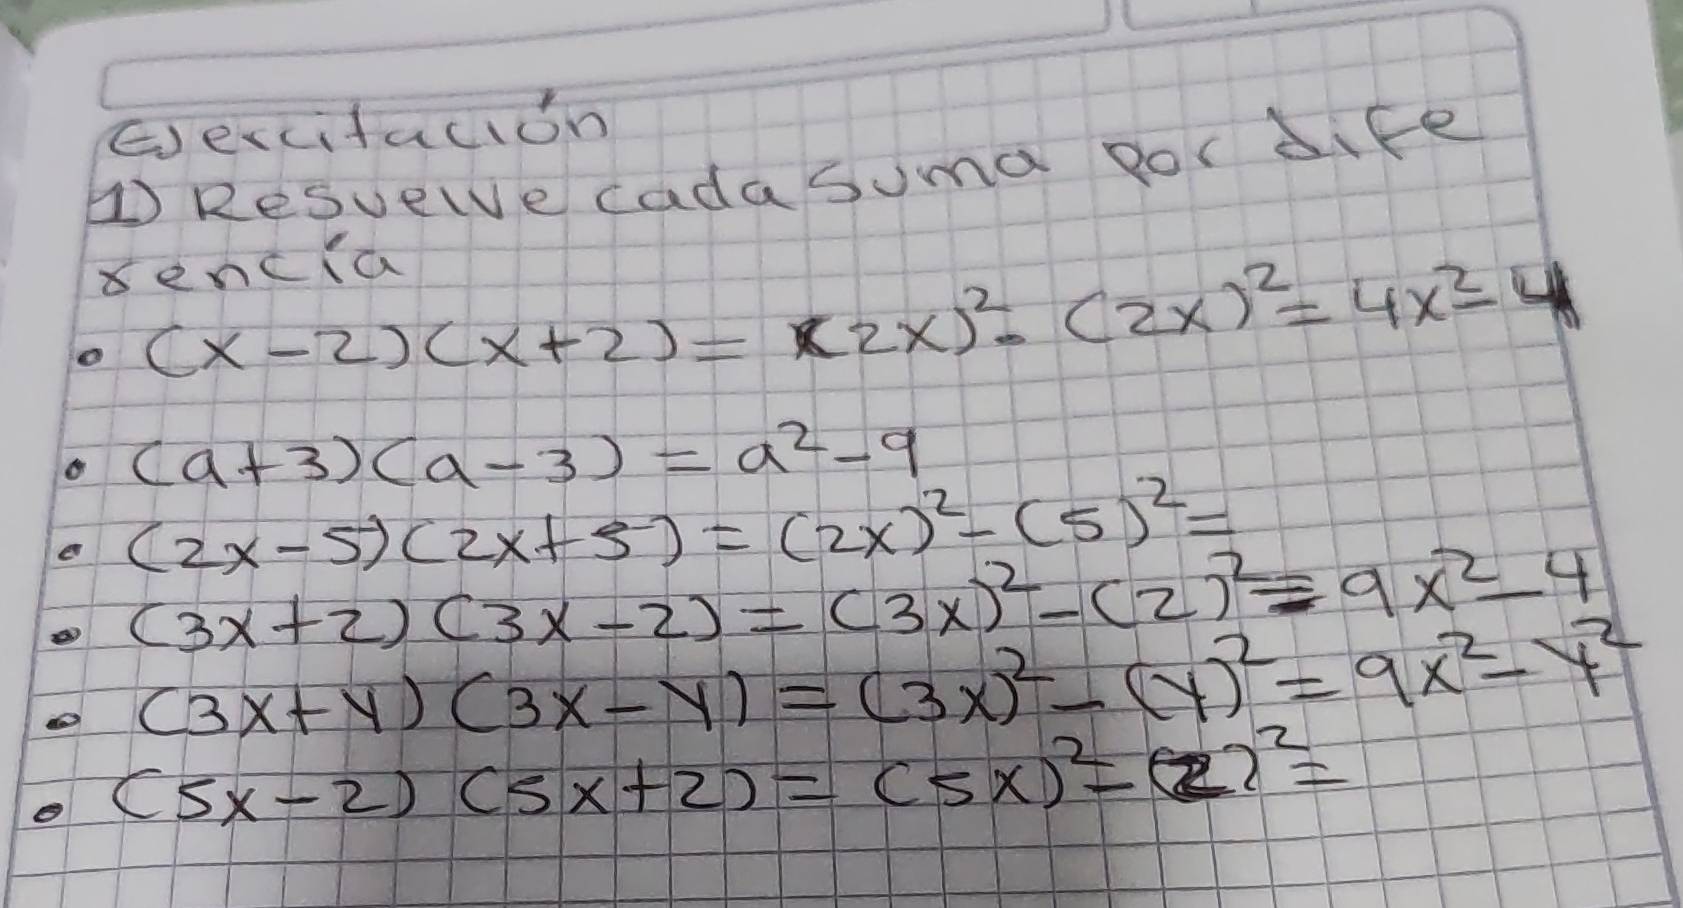 Ejercitación
1) Resuelve cada suma por dife
rencia
• (x-2)(x+2) = (2x)² - (2x)² = 4x² - 4
• (a+3)(a-3) = a² - 9
• (2x-5)(2x+5) = (2x)² - (5)² =
• (3x+2)(3x-2) = (3x)² - (2)² = 9x² - 4
• (3x+y)(3x-y) = (3x)² - (y)² = 9x² - y²
• (5x-2)(5x+2) = (5x)² - (2)² =